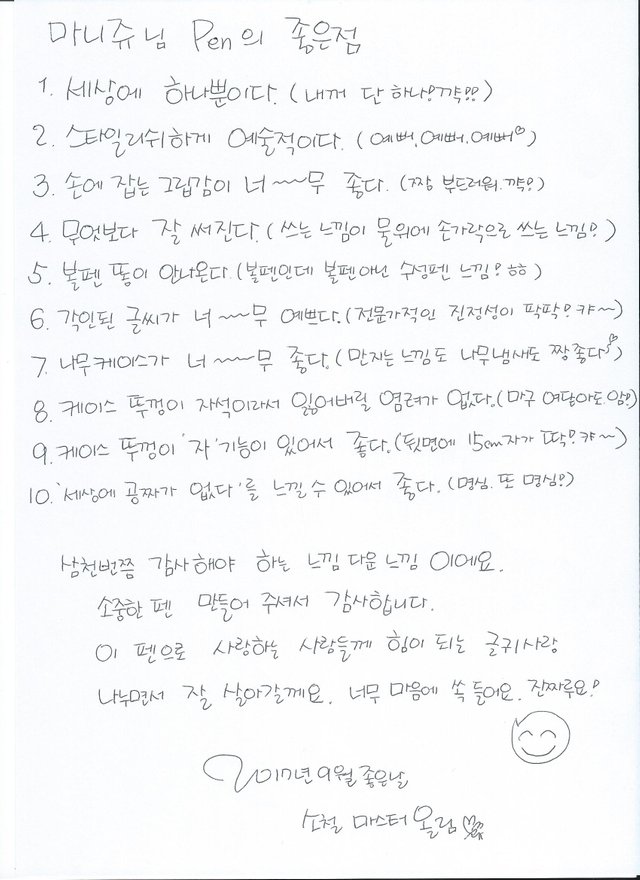 마니쥬님 Pen의 좋은점
1. 세상에 하나뿐이다. (내꺼 단 하나! 꺅!!)
2. 스타일리쉬하게 예술적이다. (예뻐, 예뻐, 예뻐♡)
3. 손에 잡는 그립감이 너~~무 좋다. (짱 부드러워. 꺅!)
4. 무엇보다 잘 써진다. (쓰는 느낌이 물위에 손가락으로 쓰는 느낌!)
5. 볼펜 똥이 안나온다. (볼펜인데 볼펜아닌 수성펜 느낌! ㅎㅎ)
6. 각인된 글씨가 너~~무 예쁘다. (전문가적인 진정성이 팍팍! 캬~)
7. 나무케이스가 너~~무 좋다. (만지는 느낌도 나무냄새도 짱 좋다)
8. 케이스 뚜껑이 자석이라서 잃어버릴 염려가 없다. (마구 여닫아도. 암!)
9. 케이스 뚜껑이 '자' 기능이 있어서 좋다. (뒷면에 15cm자가 딱! 캬~)
10. '세상에 공짜가 없다'를 느낄 수 있어서 좋다. (명심. 또 명심!)
삼천번쯤 감사해야 하는 느낌 다운 느낌 이에요.
소중한 펜 만들어 주셔서 감사합니다.
이 펜으로 사랑하는 사람들께 힘이 되는 글귀사랑
나누면서 잘 살아갈께요. 너무 마음에 쏙 들어요. 진짜루요!
2017년 9월 좋은날
소철 마스터 올림